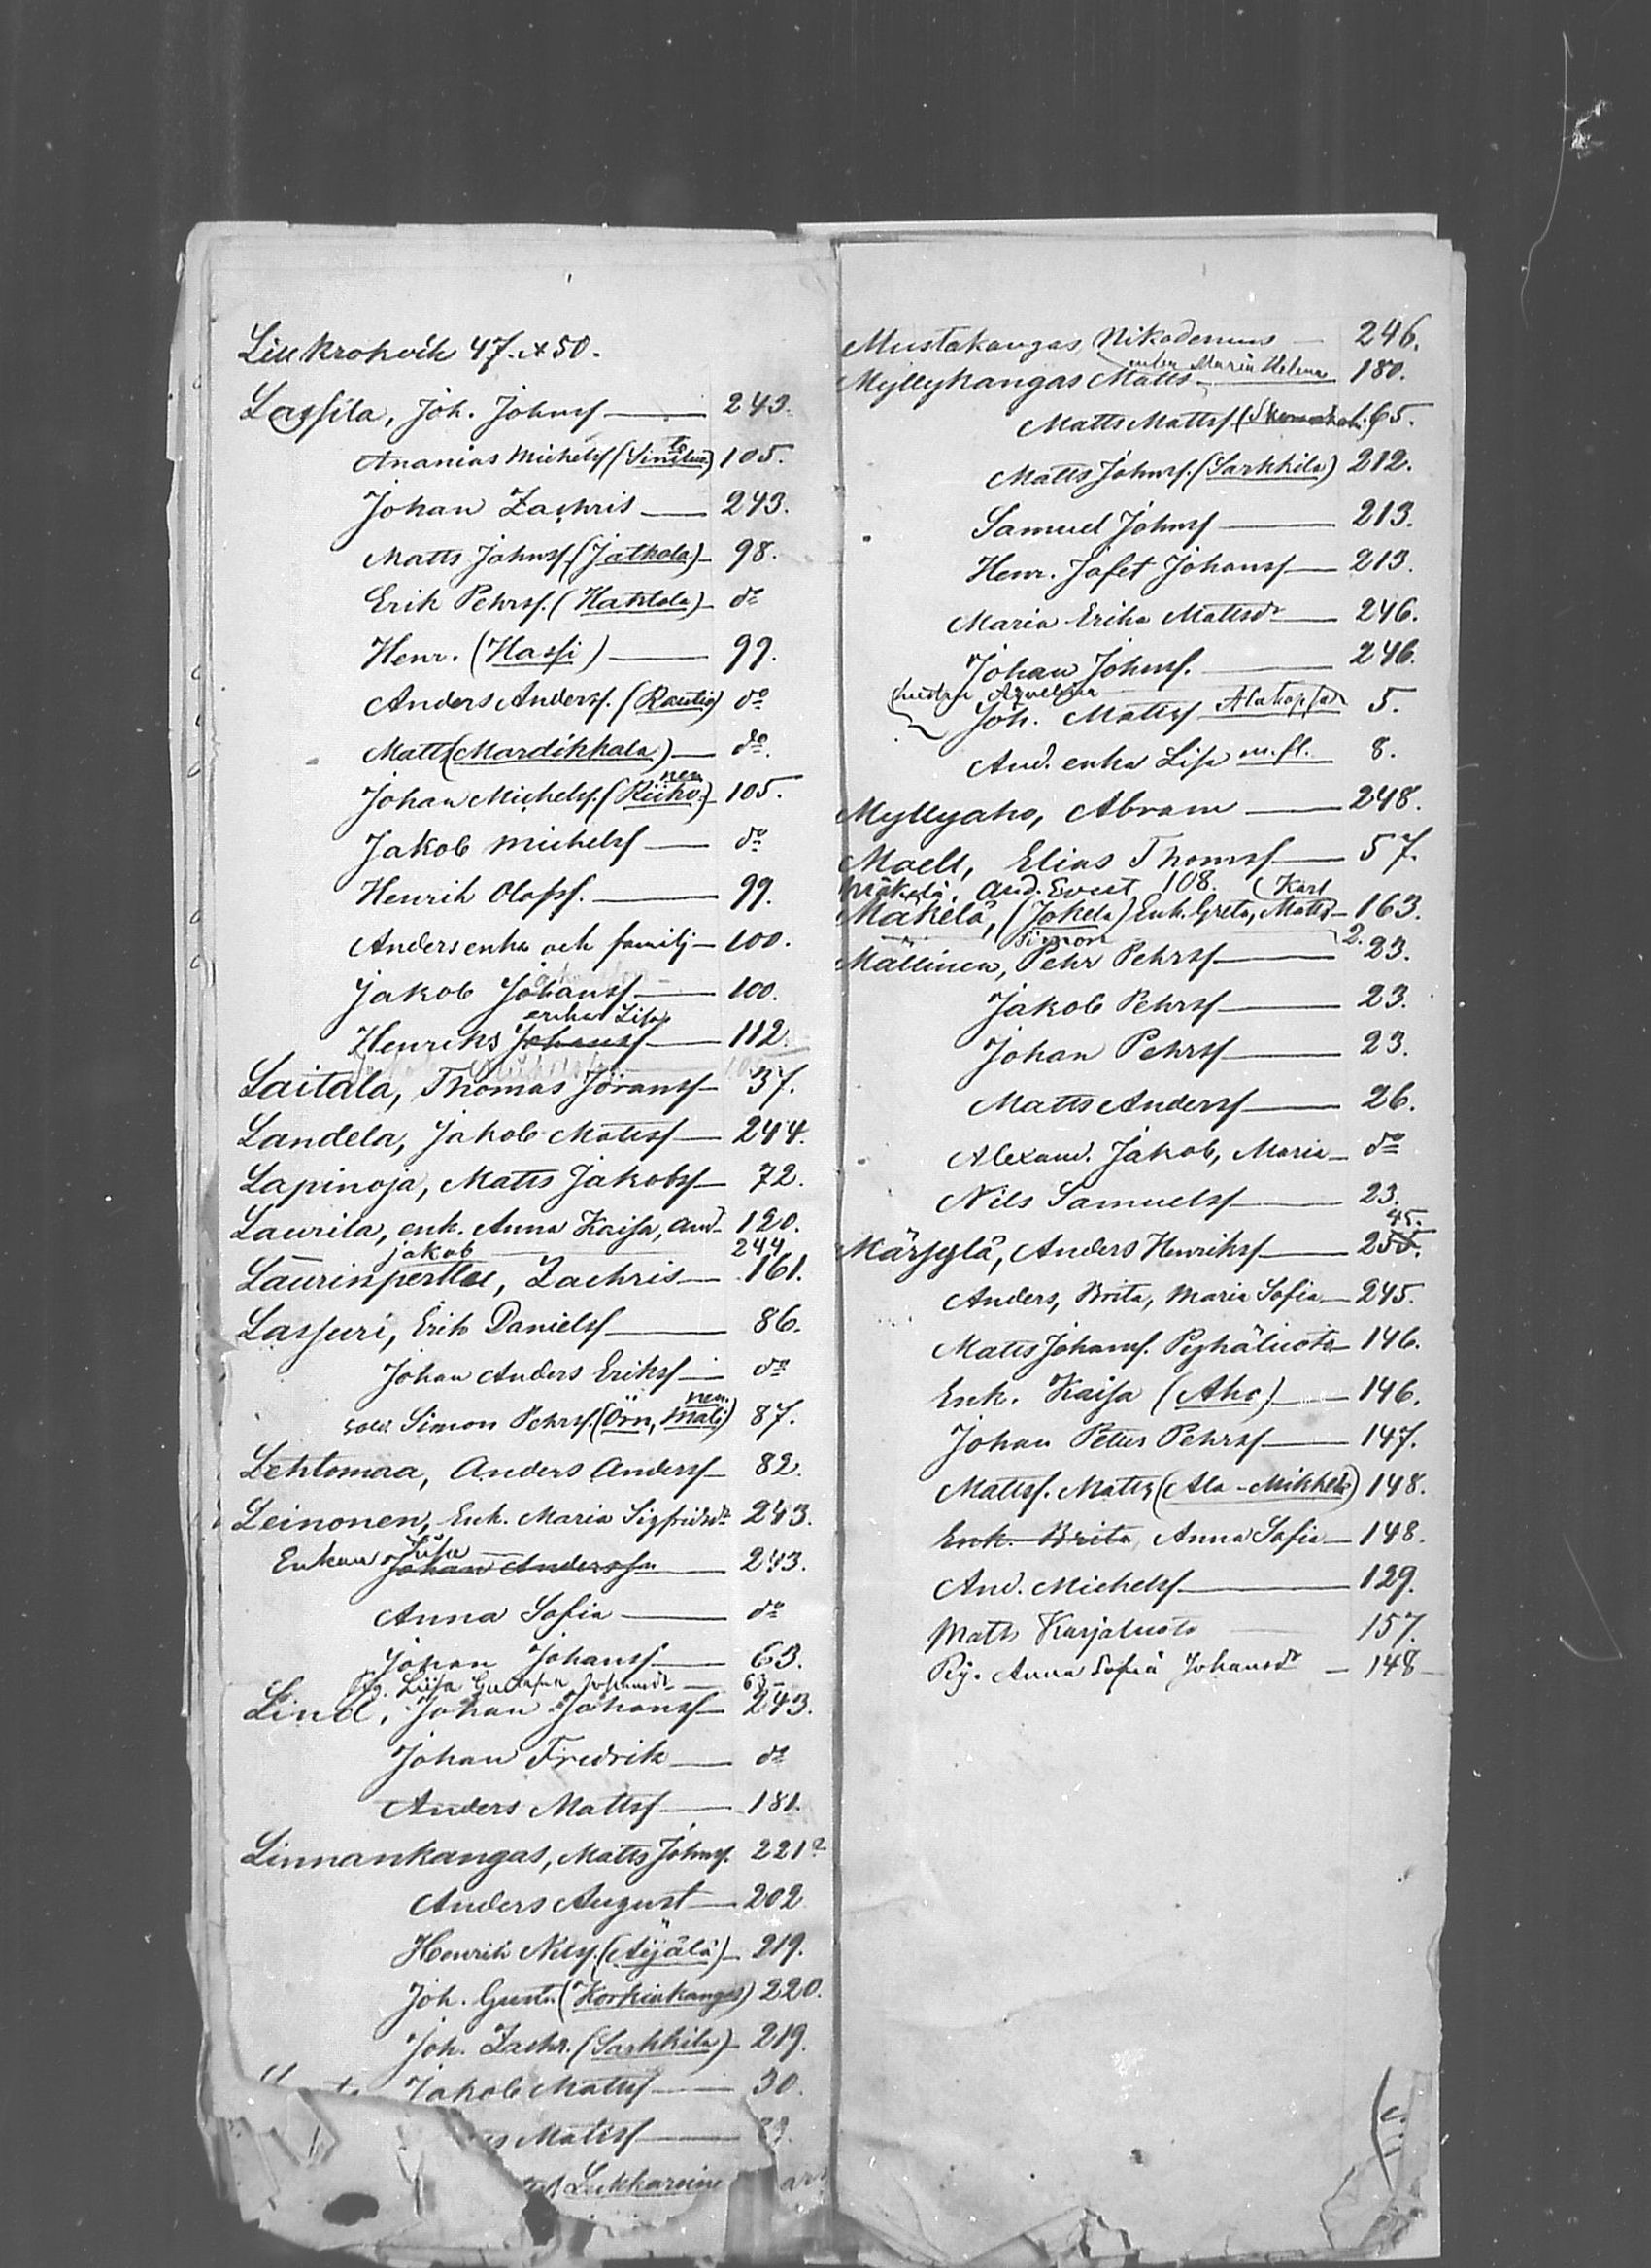 Liukrohvik 47. & 50.
Lassila, Joh. Johnsf 243.
Ananias Michelsf 105.
Johan Zachris 243.
Matts Johnsf. (Jatkola) 98.
Erik Pehrsf. (Hakkola) do
Henr. (Hassi) 99.
Anders Andersf. (Rautio) do
Matts (Mardikkala) do
nem
Johan Michelsf. (Riiho.) 105.
Jakob Michelsf do
Henrik Olofsf. 99.
Anders enka och familj 100.
Jakob Johansf 100.
enka Lisa
Henriks Johansf 112.
Laitala, Thomas Jöransf 37.
Landela, Jakob Matssf 244.
Lapinoja, Matts Jakobsf 72.
Laurila, enk. Anna Kaisa, And. 120.
Jakob 244
Laurinperttu, Zachris 161.
Lassuri, Erik Danielsf 86.
Johan Anders Eriksf do
nem.
Simon Pehrsf. (Örn, Mali) 87.
Lehtomaa, Anders Andersf 82.
Leinonen, Enk. Maria Sigfridsdr 243.
Lisa
Enkan Johan Andersson 243.
Anna Sofia do
Johan Johansf 63.
Lisa Gustafva Johansdr 63
Lind, Johan Johansf 243.
Johan Fredrik do
Anders Mattsf 181.
Linnankangas, Matts Johnsf. 221
Anders August 202
Henrik Nilsf. (Äijälä) 219.
Joh. Gust. (Korkiakangas) 220.
Joh. Zachr. (Sarkkila) 219.
Jakob Mattsf 30.
Mattsf
Lukkarine
Mustakangas, Nikodemus 246.
enkan Maria Helena
Myllykangas Matts 180.
Matts Mattsf 65.
Matts Johnsf. (Sarkkila) 212.
Samuel Johnsf 213.
Henr. Jafet Johansf 213.
Maria Erika Mattsdr 246.
Johan Johnsf. 246.
hustru Aqvelina
Joh. Mattsf Alakopsa 5.
And. enka Lisa m.fl. 8.
Myllyaho, Abram 248.
Moell, Elias Thomsf 57.
Mäkelä, And. Evert 108. (Karl
Mäkelä, (Jokela) Enk. Greta, Matts 163.
Simon 2.
Mällinen, Pehr Pehrsf 23.
Jakob Pehrsf 23.
Johan Pehrsf 23.
Matts Andersf 26.
Alexand. Jakob, Maria do
Nils Samuelsf 23.
45.
Märsylä, Anders Henriksf 255.
Anders, Brita, Maria Sofia 245.
Matts Johansf. Pyhäluoto 146.
Enk. Kaisa (Aho) 146.
Johan Petter Pehrsf 147.
Mattsf. Matts (Ala-Mikkela) 148.
Enk. Brita, Anna Sofia 148.
And. Michelsf 129.
Matts Karjaluoto 157.
Pig. Anna Sofia Johansdr 148